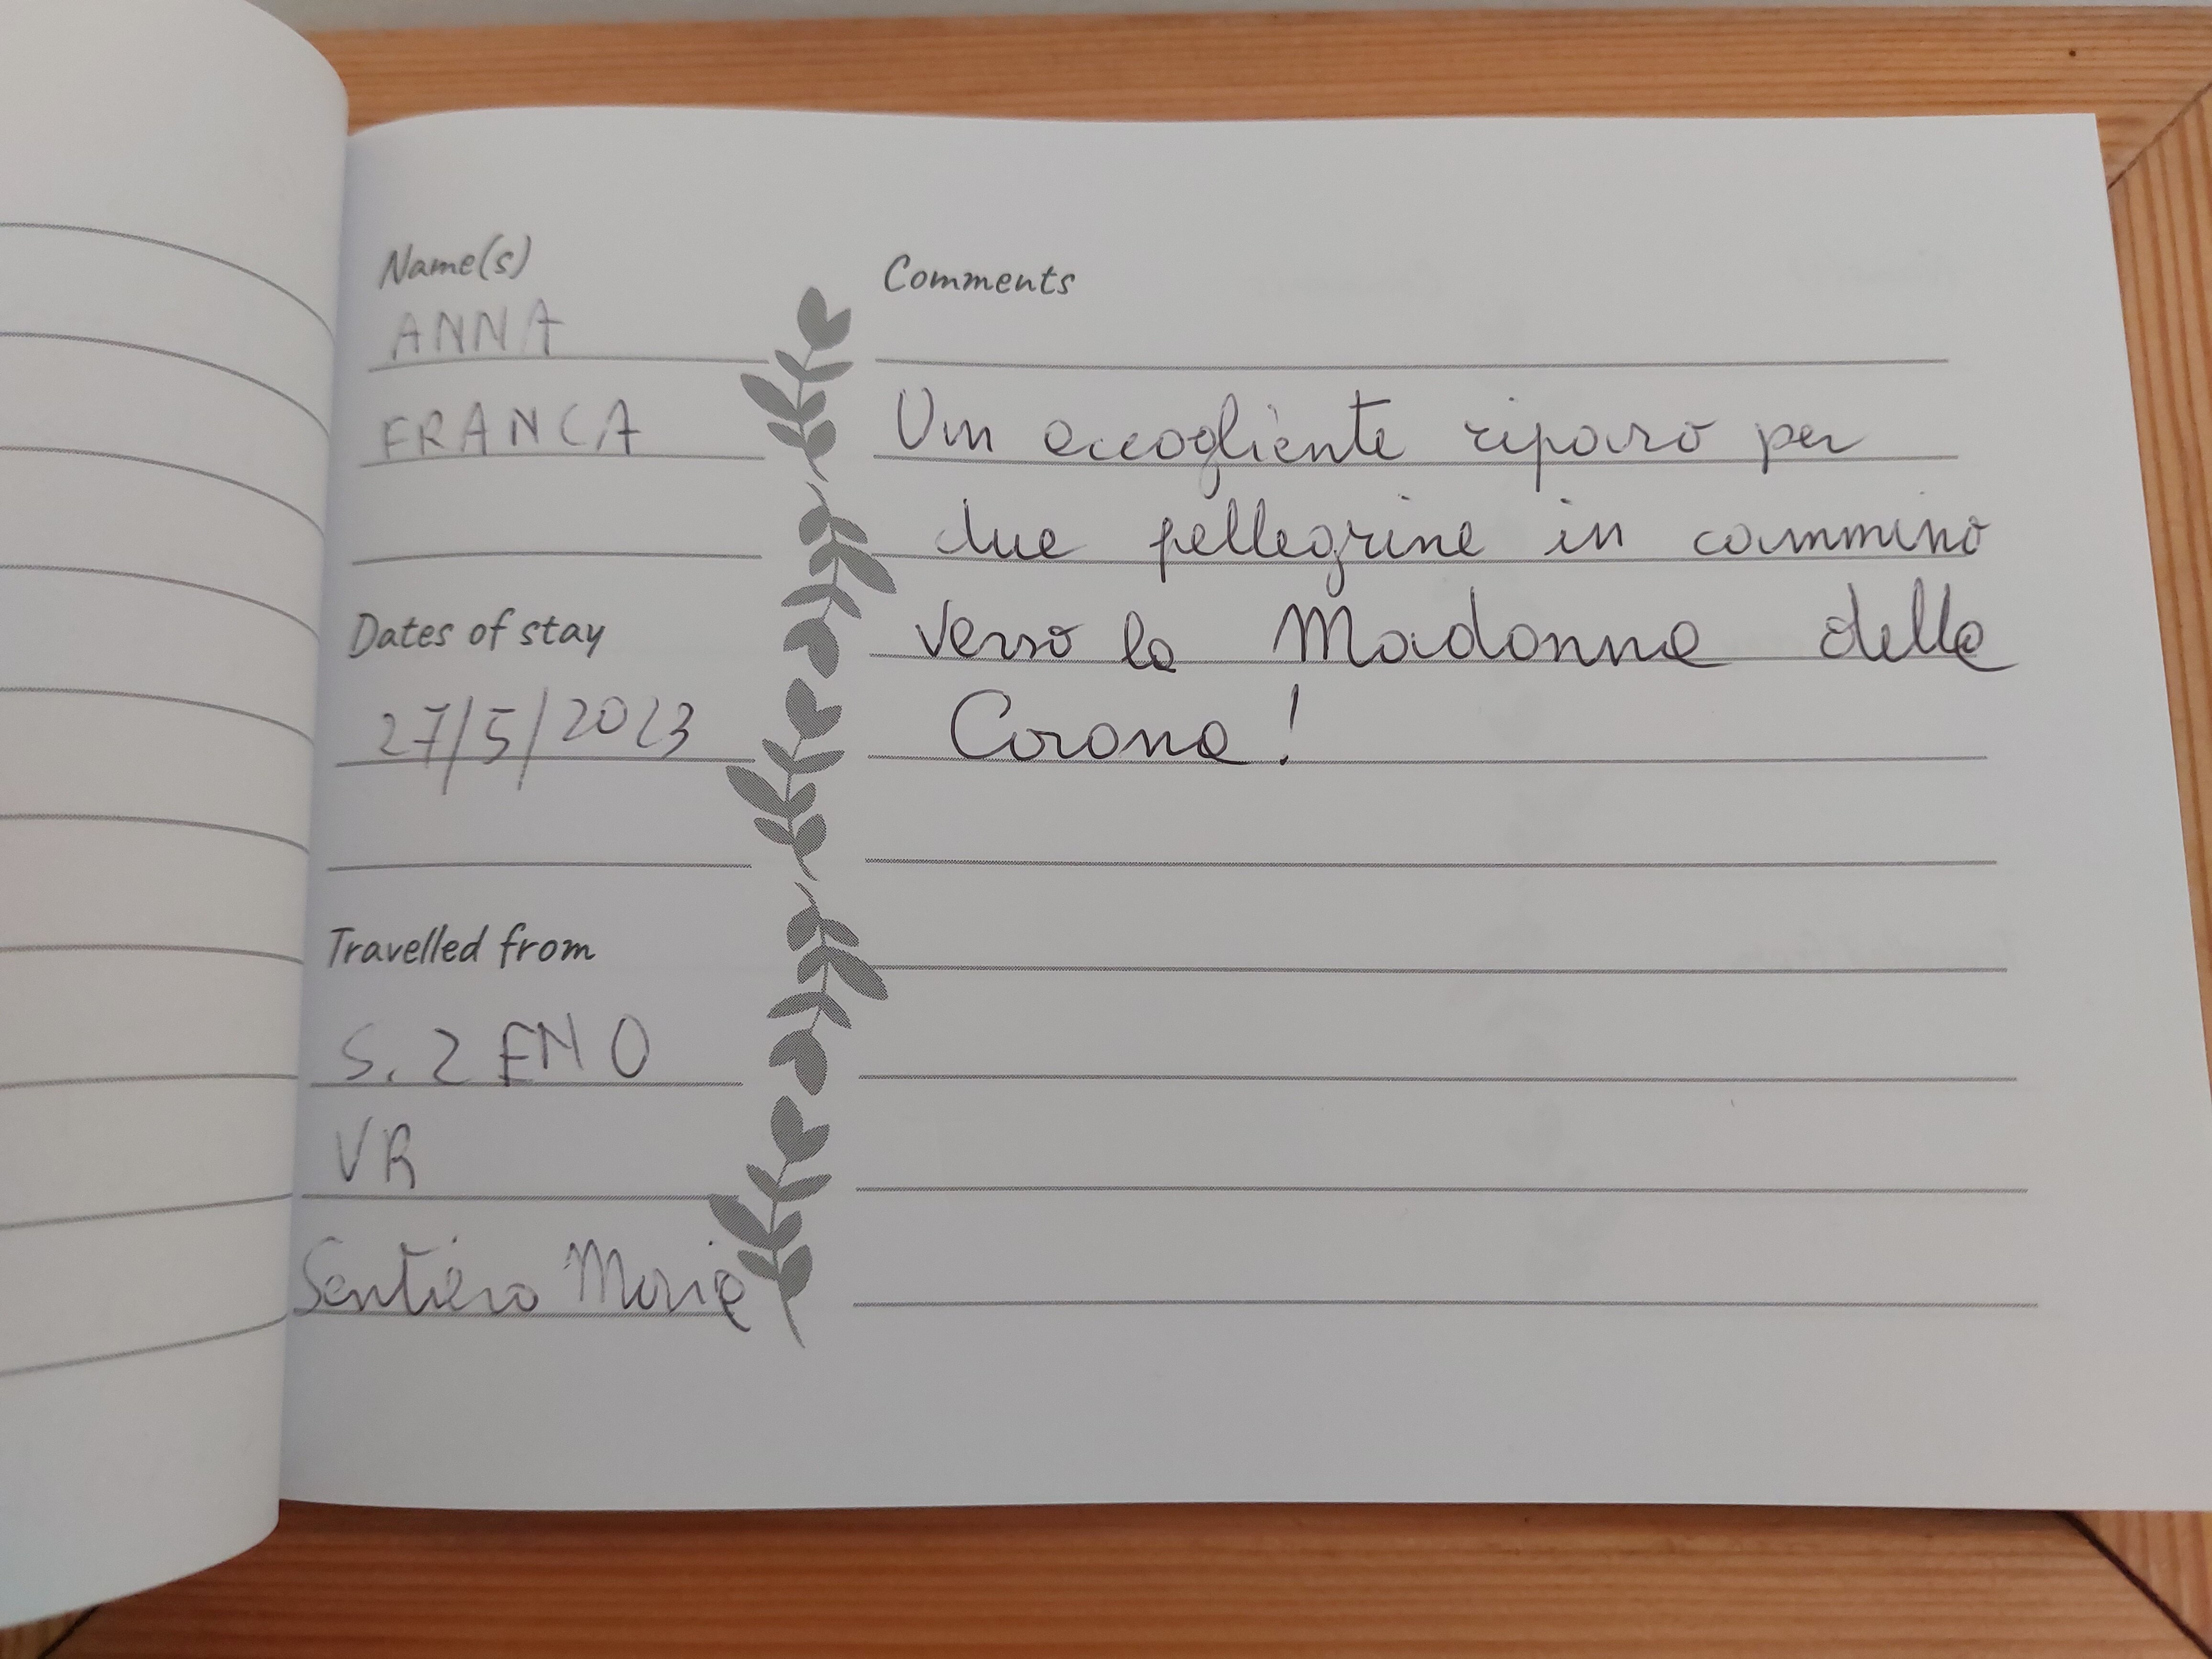 Name(s)
ANNA
FRANCA
Dates of stay
27/5/2023
Travelled from
S. ZENO
VR
Sentiero Maria
Comments
Un accogliente riparo per
due pellegrine in cammino
verso la Madonna della
Corona!